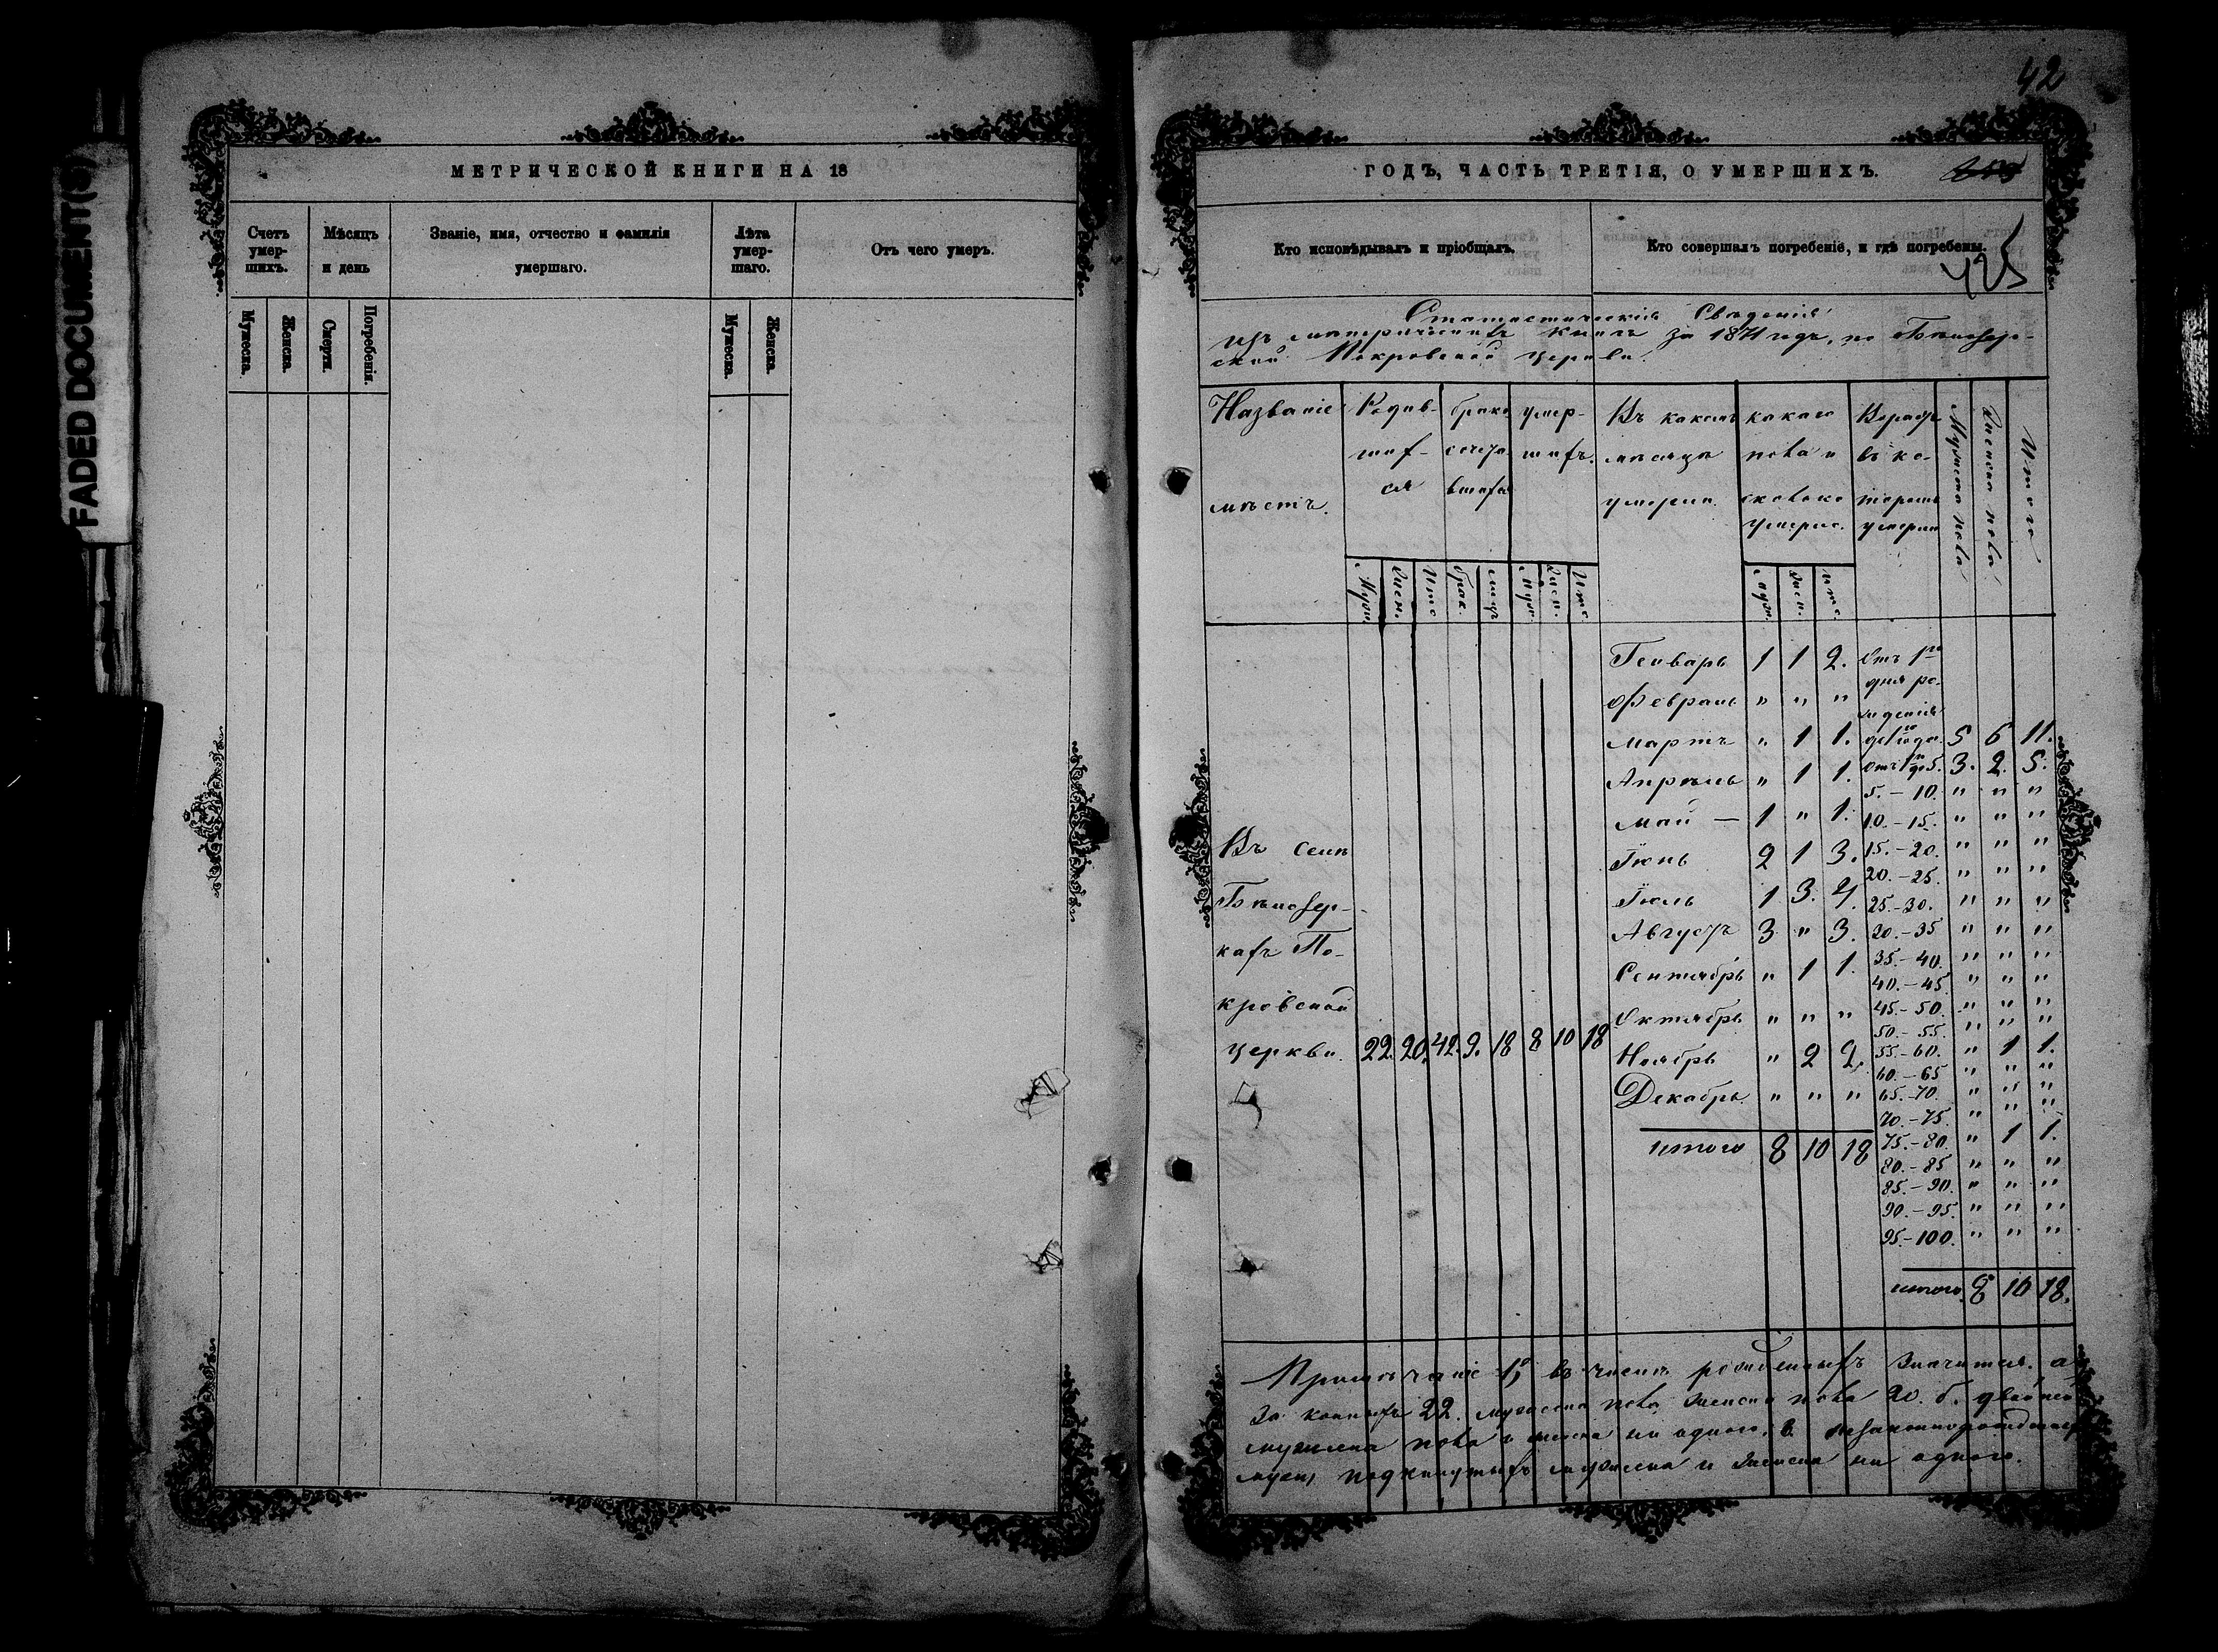 FADED DOCUMENT(S)
МЕТРИЧЕСКОЙ КНИГИ НА 18
Счетъ умер-шихъ.
Мѣсяцъ и день
Званіе, имя, отчество и фамилія умершаго.
Лѣта умер-шаго.
Отъ чего умеръ.
Мужеска.
Женска.
Смерти.
Погребенія.
Мужеска.
Женска.
42
ГОДЪ, ЧАСТЬ ТРЕТІЯ, О УМЕРШИХЪ.
Кто исповѣдывалъ и пріобщалъ.
Кто совершалъ погребеніе, и гдѣ погребены.
425
Статистическія Свѣденія
изъ метрическихъ книгъ за 1871 годъ, по Бѣлозер-
ской Покровской церкви.
Названіе мѣстъ.
Родив-шихся
брако сочетавшихся
умер-шихъ.
Въ какомъ мѣсяцѣ умерли.
какого пола и сколько умерло.
Возрастъ въ ко-торомъ умерли
Мужеска пола
Женска пола
Итого
Муж. Жен. Итго брак. лицъ муж. жен. Итго
муж. жен. итго
Генварь 1 1 2. Отъ 1го
дня ро-
Февраль " " " жденія
Мартъ " 1 1. до 1го года. 5 6 11.
Апрѣль " 1 1. Отъ 1 до 5. 3. 2. 5.
5. – 10. " " "
Май – 1 " 1. 10. – 15. " " "
Въ селѣ Іюнь 2 1 3. 15. – 20. " " "
20. – 25. " " "
Бѣлозер- Іюль 1 3. 4. 25. – 30. " " "
кахъ По- Августъ 3 " 3. 30. – 35 " " "
35. – 40. " " "
Сентябрь " 1 1. 40. – 45. " " "
кровской 45. – 50. " " "
Октябрь " " " 50. – 55. " " "
церкви. 22. 20. 42. 9. 18 8 10 18 Ноябрь " 2 2. 55. – 60. " 1 1.
60. – 65 " " "
Декабрь. " " " 65. – 70. " " "
70. – 75. " " "
итого 8 10 18 75. – 80. " 1 1.
80. – 85 " " "
85. – 90. " " "
90. – 95. " " "
95. – 100. " " "
итого. 8 10 18.
Примѣчаніе 1е, въ числѣ рожденныхъ значится. а
муж. пола 22. женска пола 20. б. двойней
мужеска пола и женска ни одного, в. незаконнорожденныхъ
подкинутыхъ мужеска и женска ни одного.